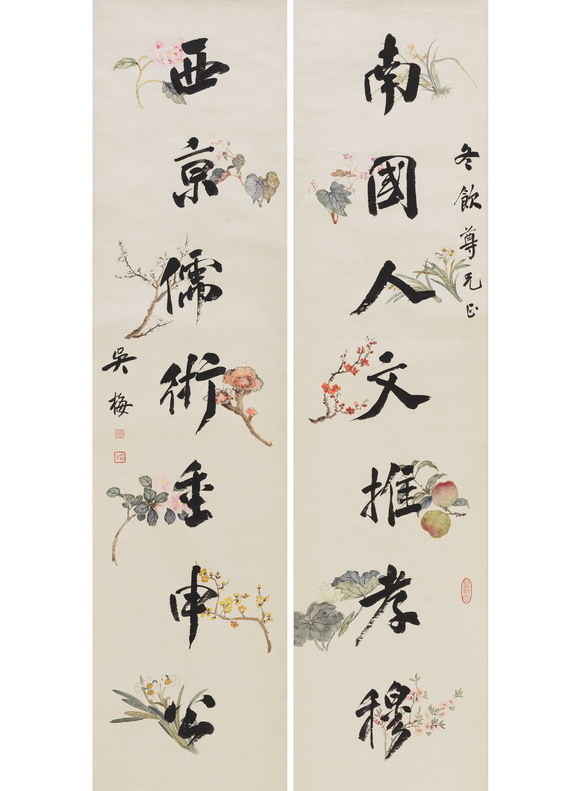 冬飲尊兄正
南國人文推孝穆
西京儒術重申公
吳梅